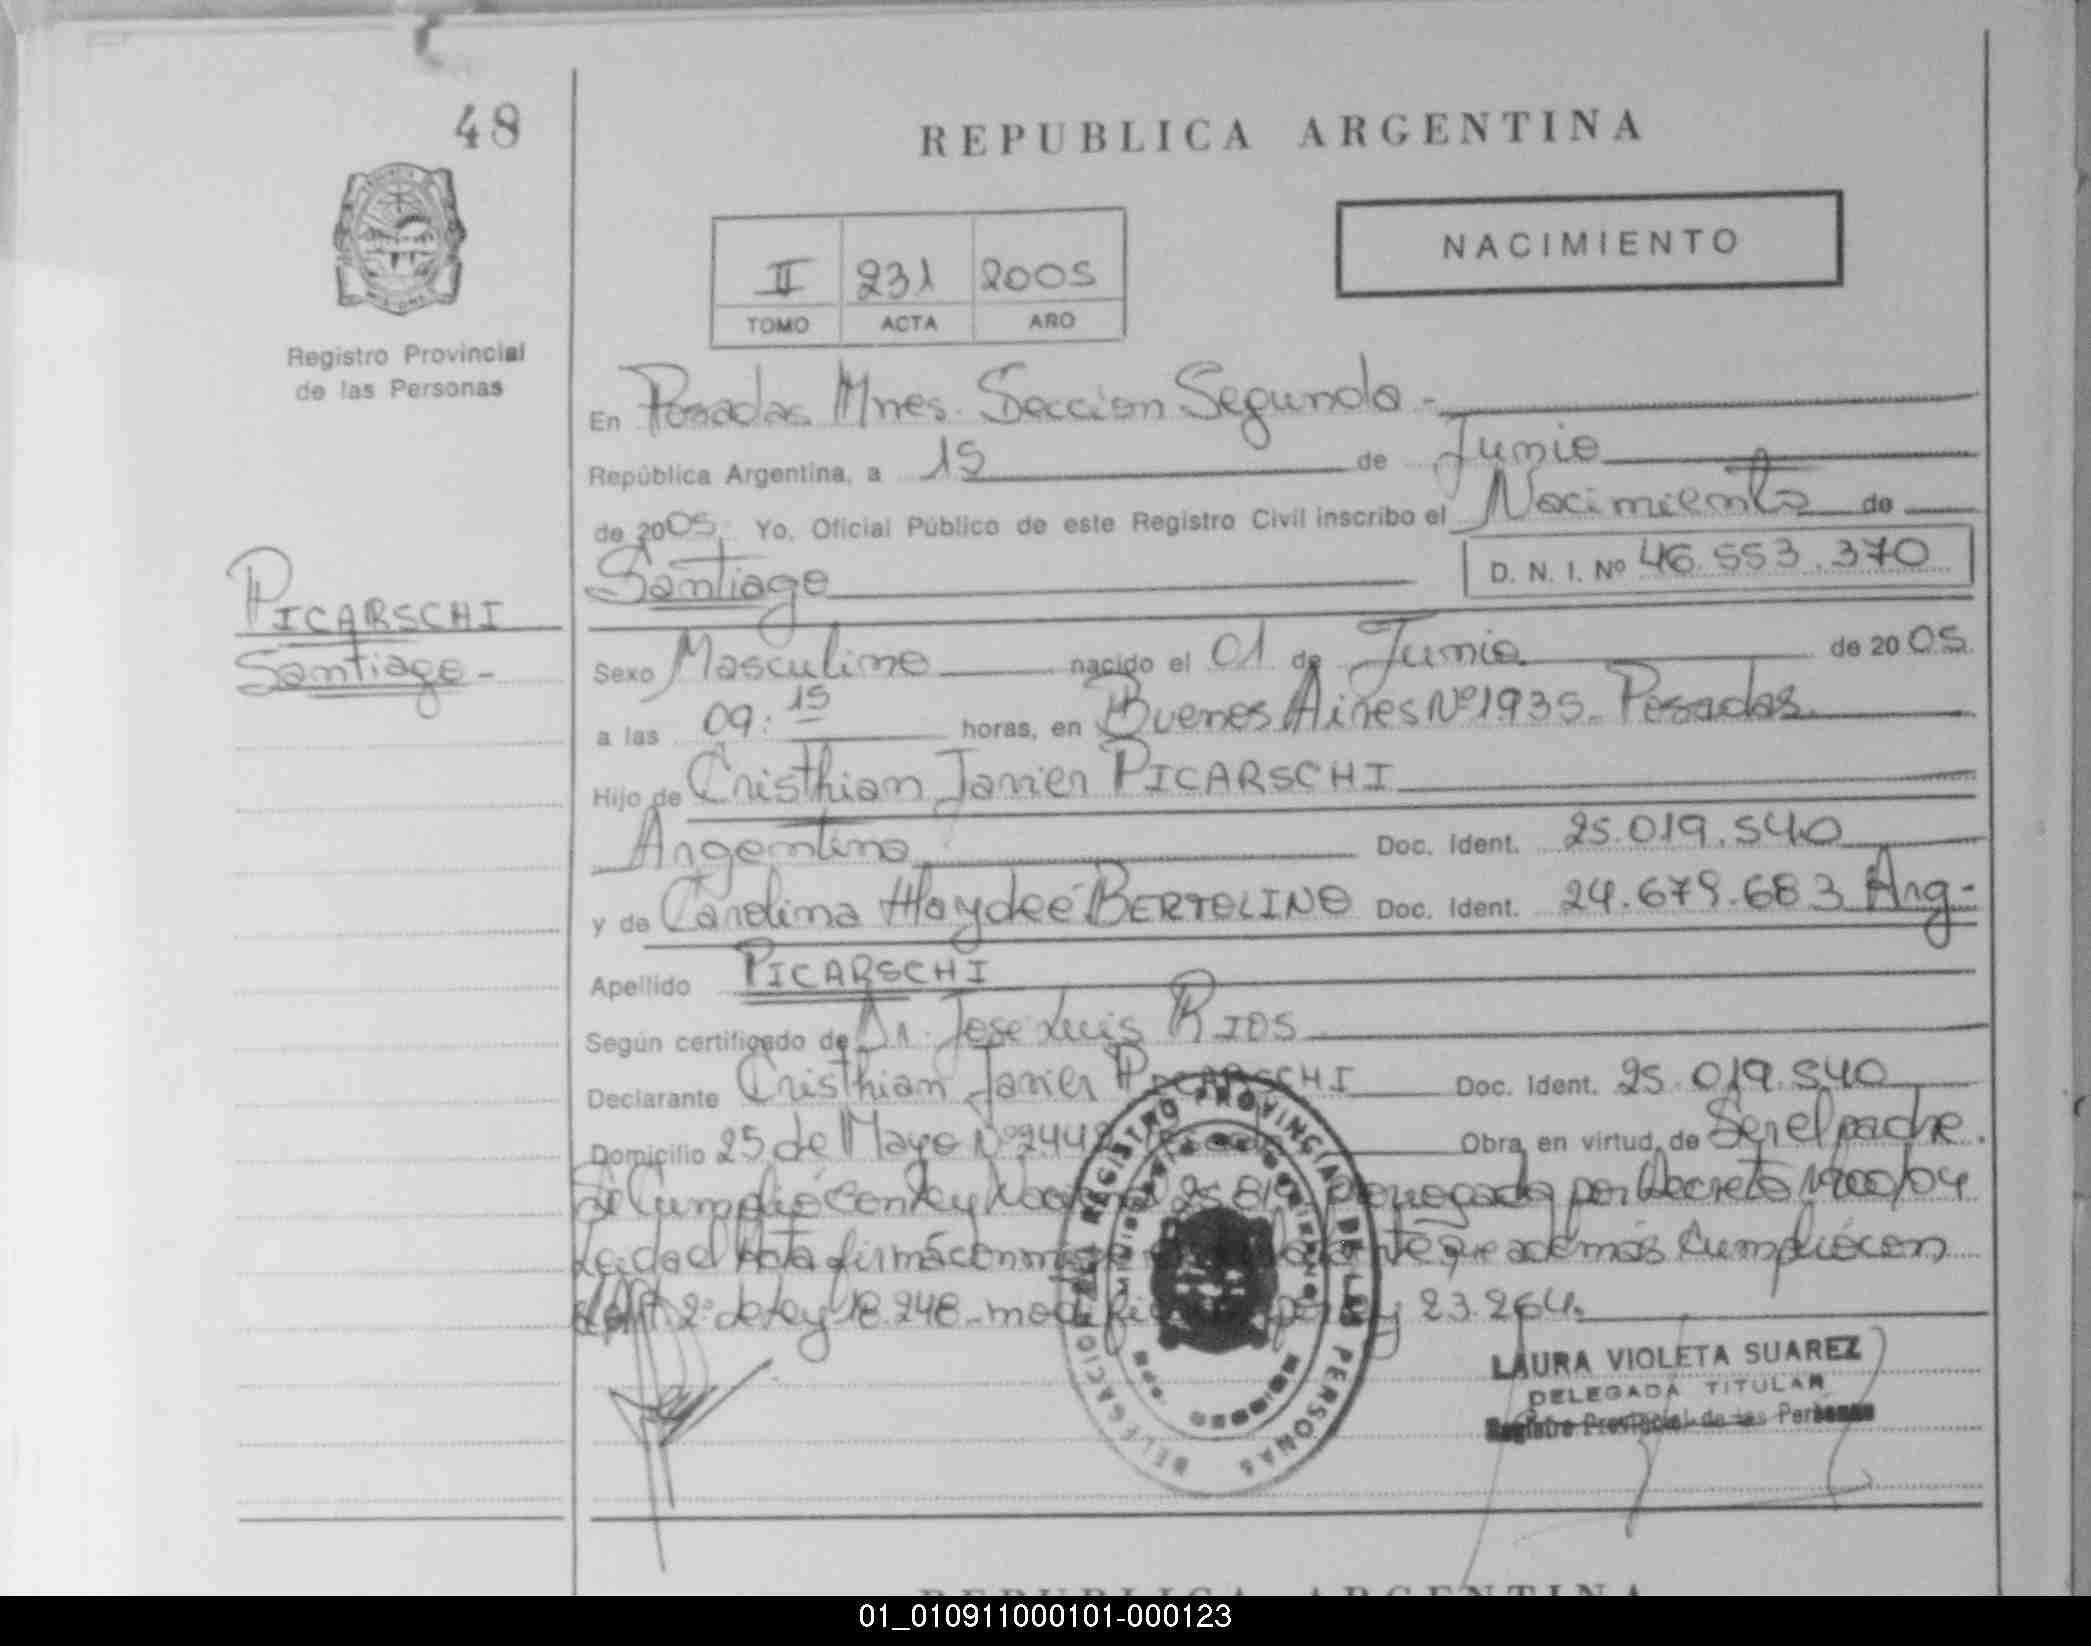 48
REPUBLICA ARGENTINA
NACIMIENTO
II 231 2005
TOMO ACTA AÑO
Registro Provincial
de las Personas
En Posadas Mnes. Seccion Segunda -
República Argentina, a 15 de Junio
de 2005. Yo, Oficial Público de este Registro Civil inscribo el Nacimiento de
Santiago D. N. I. Nº 46.553.370
PICARSCHI
Santiago -
Sexo Masculino nacido el 01 de Junio de 2005.
a las 09:15 horas, en Buenos Aires Nº 1935. Posadas.
Hijo de Cristhian Javier PICARSCHI
Argentino Doc. Ident. 25.019.540
y de Carolina Haydeé BERTOLINO Doc. Ident. 24.679.683 Arg.-
Apellido PICARSCHI
Según certificado de Dr. Jose Luis RIOS
Declarante Cristhian Javier PICARSCHI Doc. Ident. 25.019.540
Domicilio 25 de Mayo Nº 2442 Obra en virtud de Ser el padre.
Se Cumplió con Ley prorrogada por Decreto 1900/04
Leida el Acta firmá conmigo que además Cumplió con
el Art 2º de Ley 18.248 - modific por Ley 23.264.
REGISTRO PROVINCIAL DE LAS PERSONAS
DELEGACION
LAURA VIOLETA SUAREZ
DELEGADA TITULAR
Registro Provincial de las Personas
REPUBLICA ARGENTINA
01_010911000101-000123